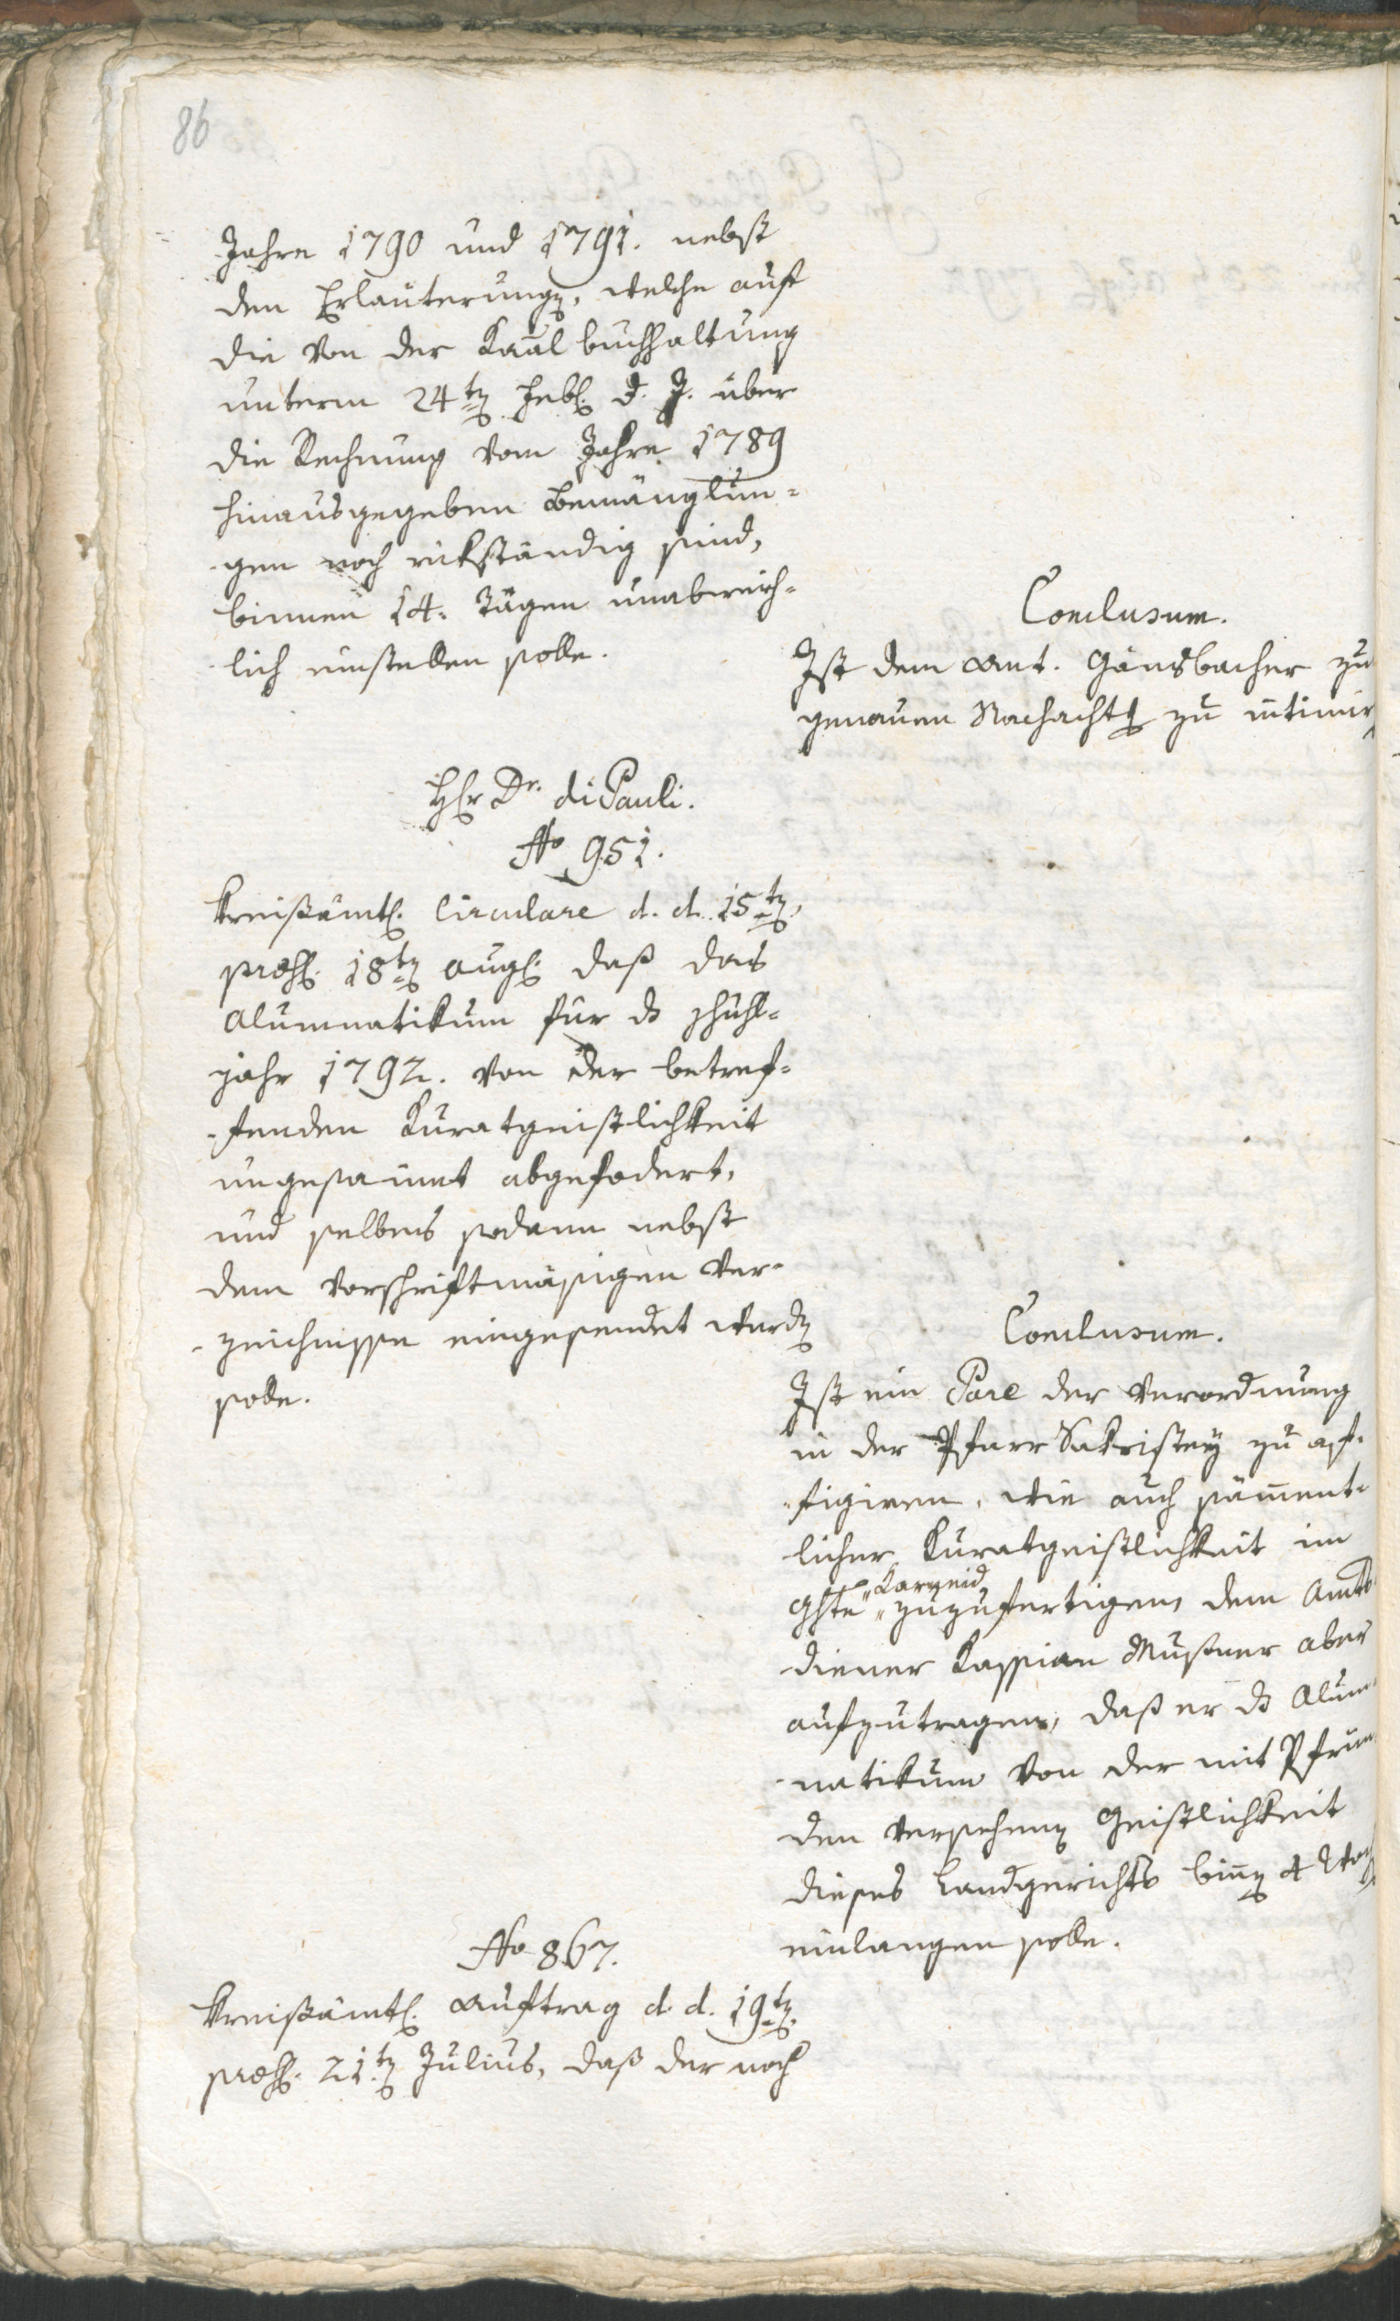 86
Jahre 1790 und 1791. nebst
den Erläuterungen, welche auf
die von der Kaal buchhaltung
unterm 24ten Feb. d. J. über
die Rechnung vom Jahre 1789
hinausgegeben Bemänglun-
gen noch rükständig sind,
binnen 14. Tägen unabweich-
lich einstellen solle.
Conclusum.
Ist dem Ant. Gänsbacher zu
genauen Nachachtg zu intimir
Hr Dr. di Pauli.
No 951.
Kreisämtl. Circulare d. d. 15ten,
præs. 18ten Aug. daß das
Alumnatikum für ds Schuhl-
jahr 1792. von der betref-
fenden Kuratgeistlichkeit
ungesaumt abgefodert,
und selbes sodann nebst
dem vorschriftmäsigen Ver-
zeichnisse eingesendet werden
solle.
Conclusum.
Ist ein Pare der Verordnung
in der Pfarr Sakristey zu af-
figiren, wie auch sämment-
licher Kuratgeistlichkeit im
Ghte "Karneid" zuzufertigen, dem Amts
diener Kassian Mußner aber
aufzutragen, daß er ds Alum-
natikum von der mit Pfrün
den versehenen Geistlichkeit
dieses Landgerichts binnen 4 Woch
einlangen solle.
No 867.
Kreisämtl. Auftrag d. d. 19ten,
præs. 21ten Julius, daß der noch